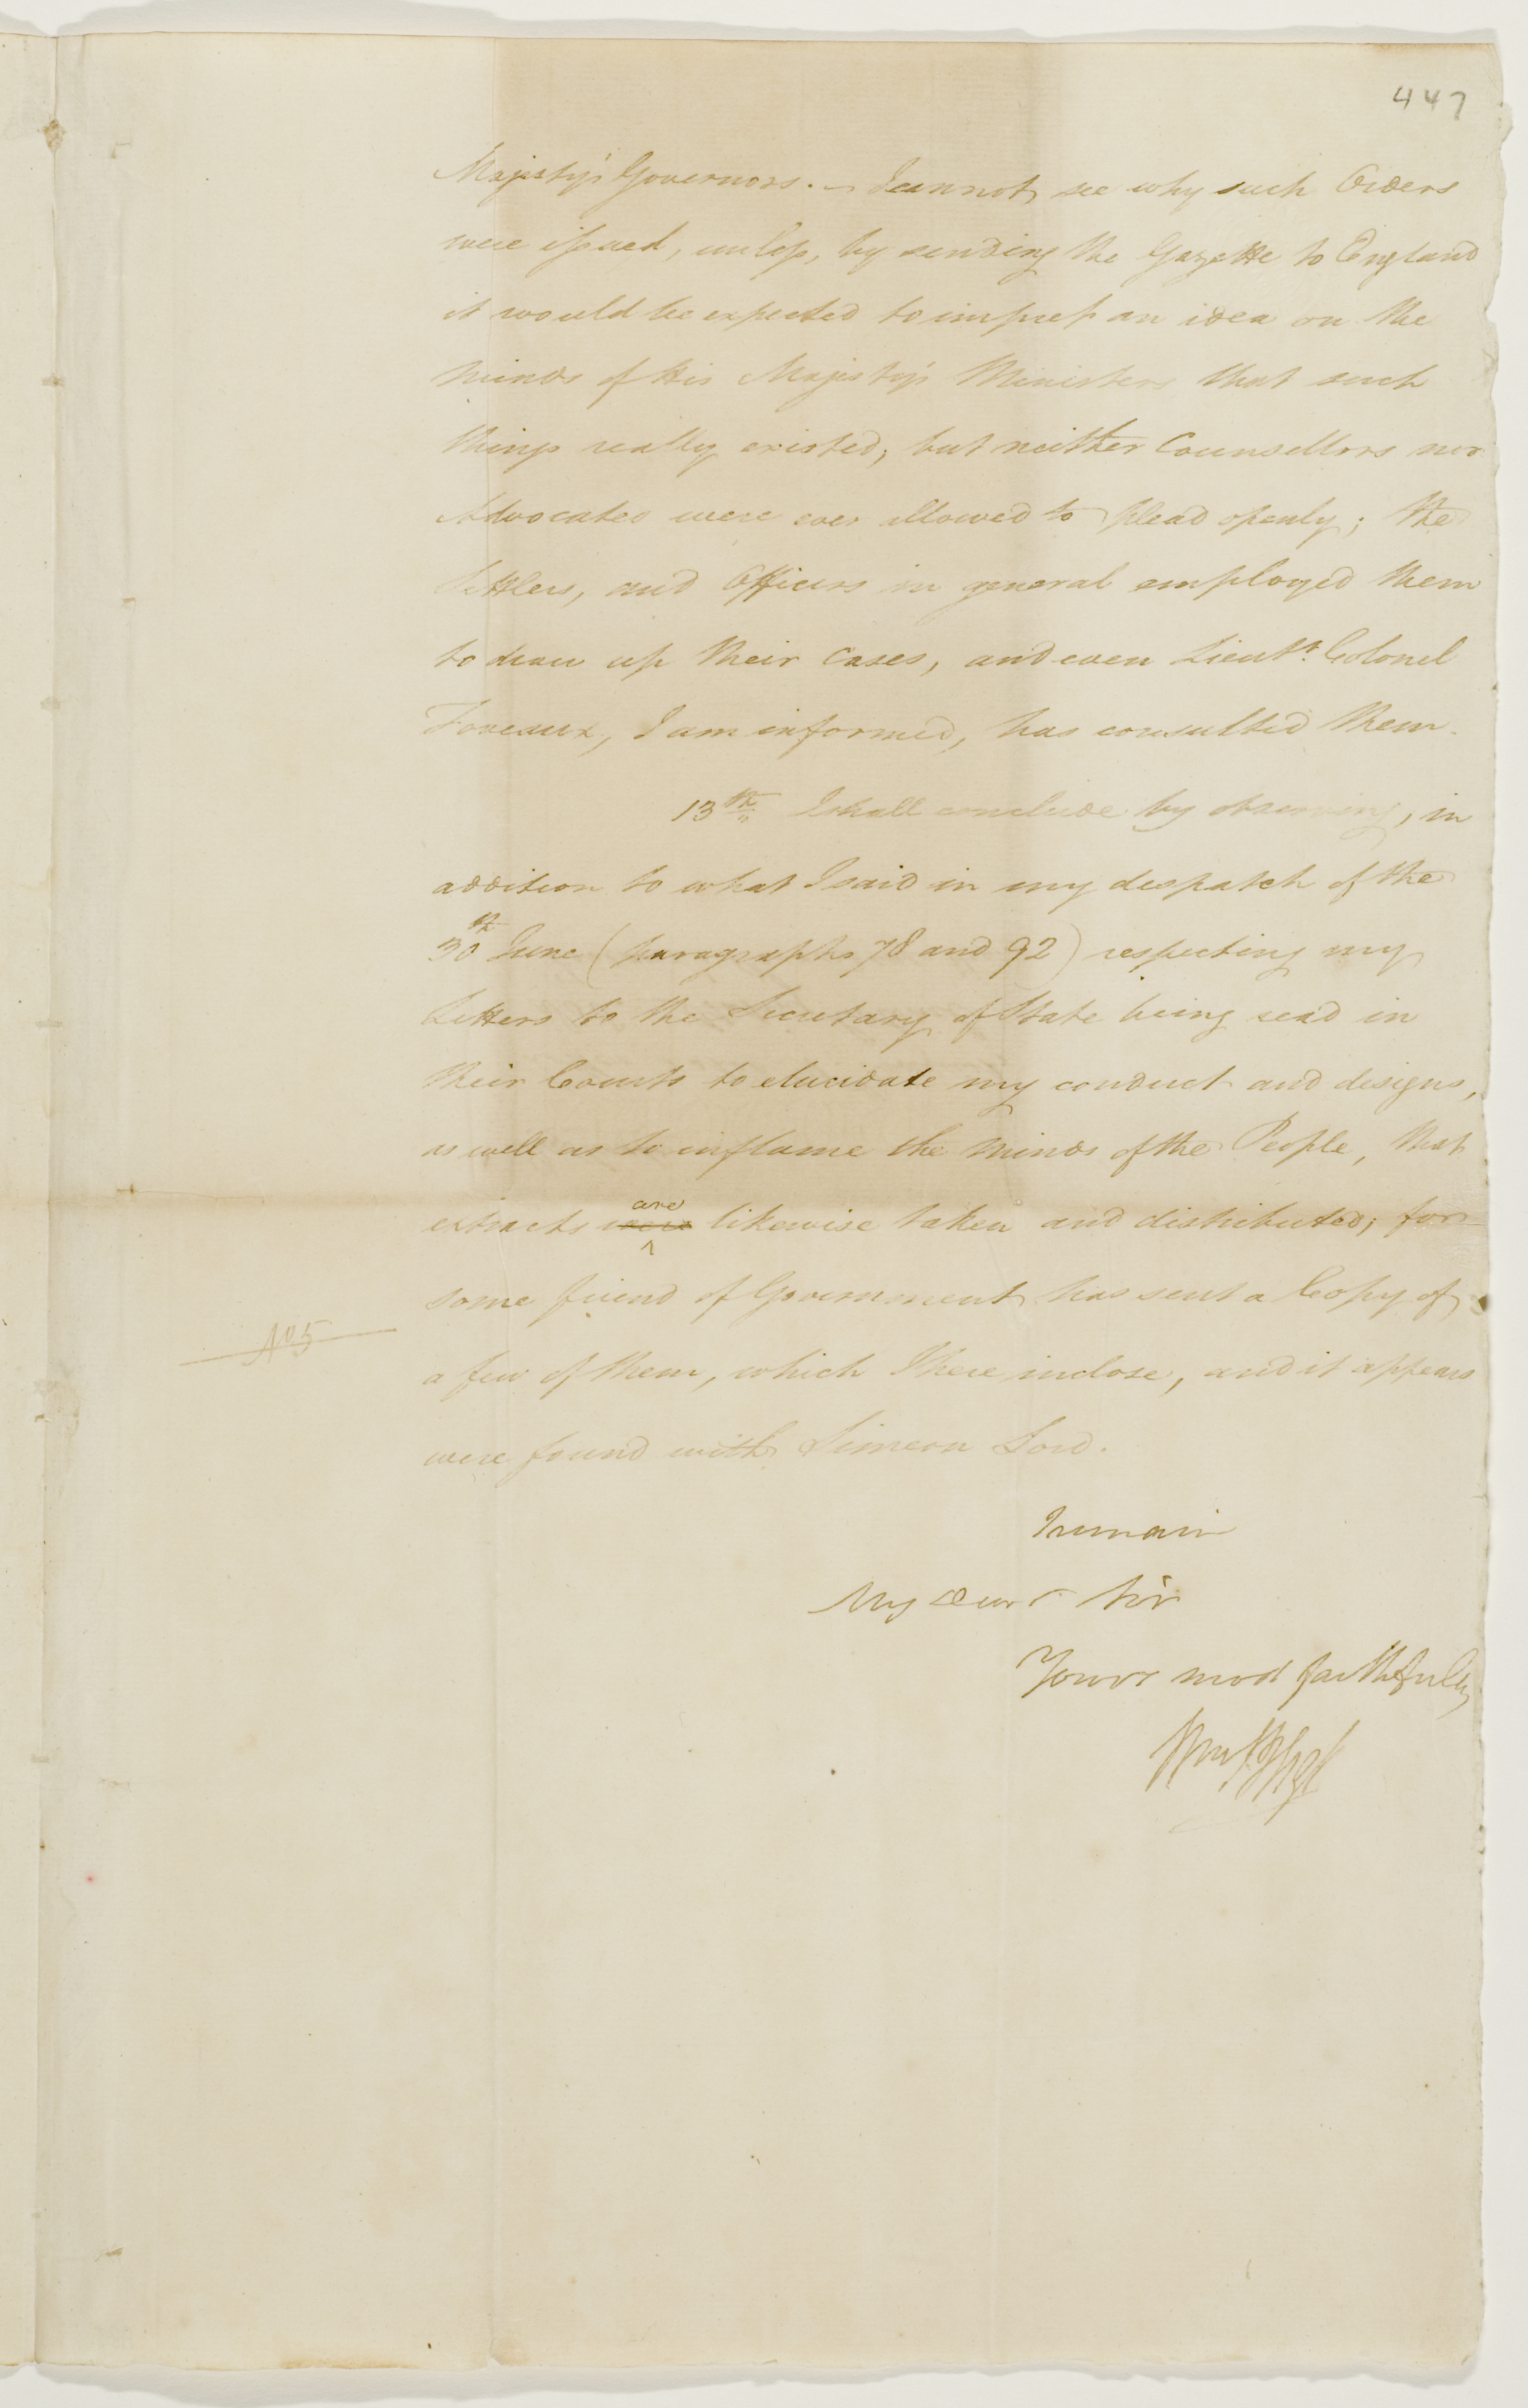 447
Majesty's Governors. — I cannot see why such Orders
were issued, unless, by sending the Gazette to England
it would be expected to impress an idea on the
minds of His Majesty's Ministers that such
things really existed; but neither Counsellors nor
Advocates were ever allowed to plead openly; the
Settlers, and Officers in general employed them
to draw up their Cases, and even Lieutt. Colonel
Foveaux, I am informed, has consulted them.
13th I shall conclude by observing, in
addition to what I said in my despatch of the
30th June (paragraphs 78 and 92) respecting my
Letters to the Secretary of State being read in
their Courts to elucidate my conduct and designs,
as well as to inflame the minds of the People, that
are
extracts were likewise taken and distributed; for
some friend of Government has sent a Copy of
No 5
a few of them, which I here inclose, and it appears
were found with Simeon Lord.
I remain
My Dear Sir
Yours most faithfully
Wm Bligh